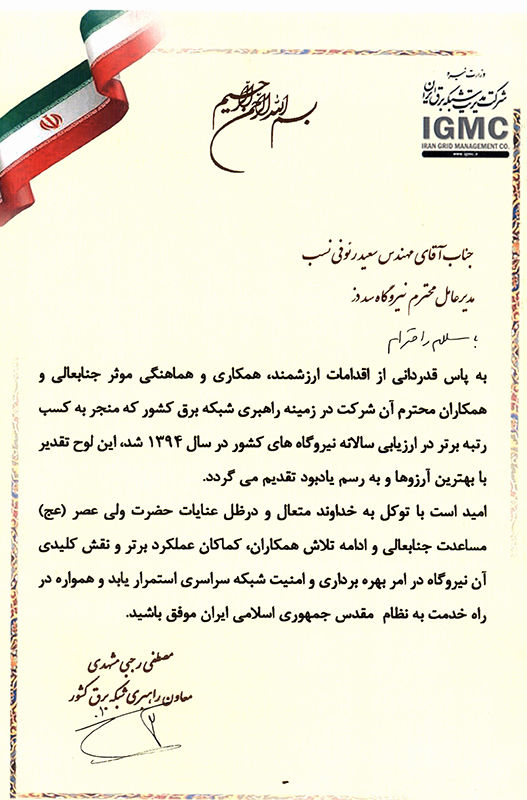 وزارت نیرو
شرکت مدیریت شبکه برق ایران
IGMC
IRAN GRID MANAGEMENT CO.
www.igmc.ir
بسم الله الرحمن الرحیم
جناب آقای مهندس سعید رئوفی نسب
مدیرعامل محترم نیروگاه سد دز
با سلام و احترام
به پاس قدردانی از اقدامات ارزشمند، همکاری و هماهنگی موثر جنابعالی و
همکاران محترم آن شرکت در زمینه راهبری شبکه برق کشور که منجر به کسب
رتبه برتر در ارزیابی سالانه نیروگاه های کشور در سال ۱۳۹۴ شد، این لوح تقدیر
با بهترین آرزوها و به رسم یادبود تقدیم می گردد.
امید است با توکل به خداوند متعال و درظل عنایات حضرت ولی عصر (عج)
مساعدت جنابعالی و ادامه تلاش همکاران، کماکان عملکرد برتر و نقش کلیدی
آن نیروگاه در امر بهره برداری و امنیت شبکه سراسری استمرار یابد و همواره در
راه خدمت به نظام مقدس جمهوری اسلامی ایران موفق باشید.
مصطفی رجبی مشهدی
معاون راهبری شبکه برق کشور